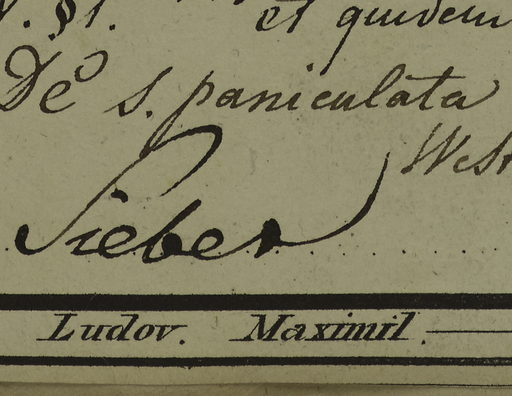 §1. et quidem
Deo s. paniculata
West
Sieber
Ludov. Maximil.